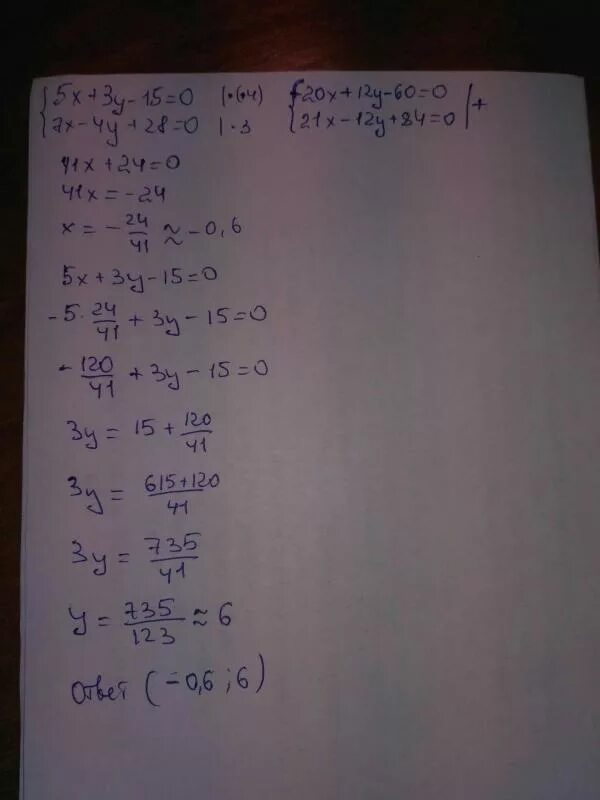 {5x+3y-15=0 |·(·4) {20x+12y-60=0 |+
{7x-4y+28=0 |·3 {21x-12y+84=0
41x+24=0
41x=-24
x=-24/41≈-0,6
5x+3y-15=0
-5·24/41+3y-15=0
-120/41+3y-15=0
3y=15+120/41
3y=615+120/41
3y=735/41
y=735/123≈6
Ответ (-0,6;6)